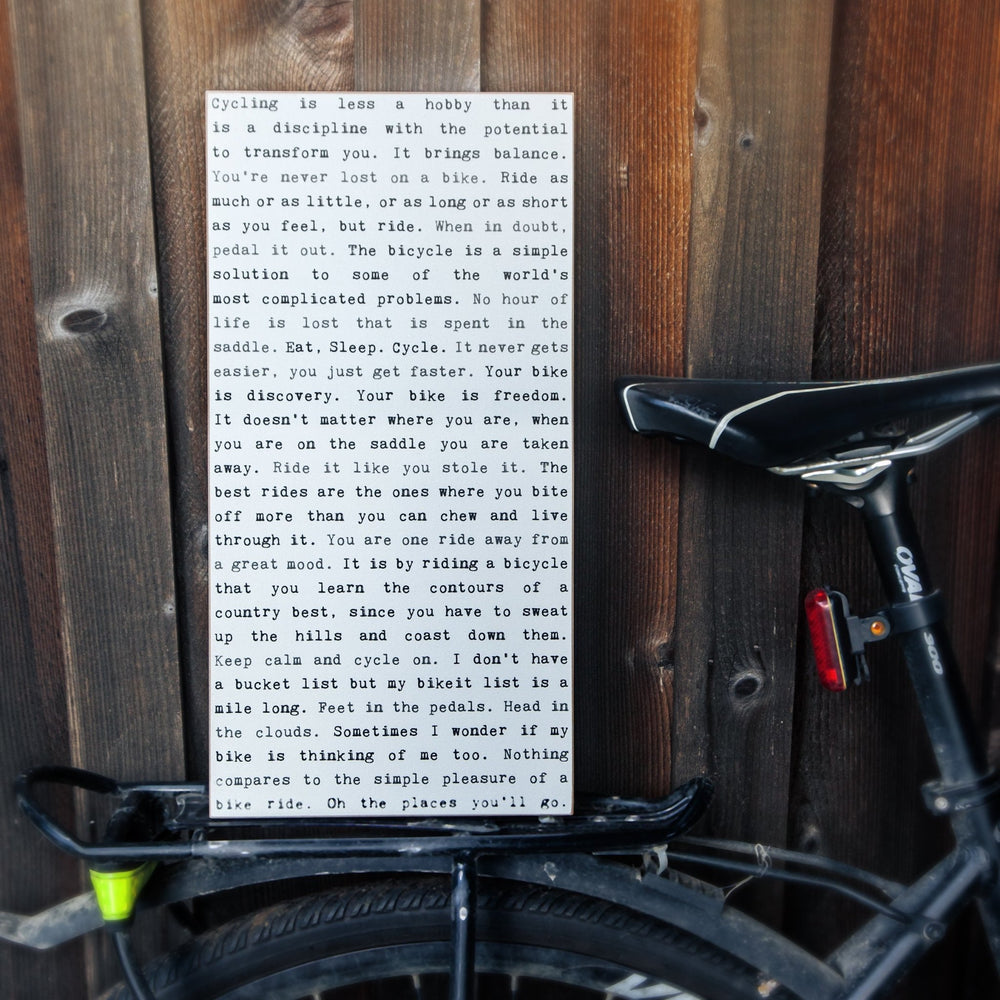 Cycling is less a hobby than it
is a discipline with the potential
to transform you. It brings balance.
You're never lost on a bike. Ride as
much or as little, or as long or as short
as you feel, but ride. When in doubt,
pedal it out. The bicycle is a simple
solution to some of the world's
most complicated problems. No hour of
life is lost that is spent in the
saddle. Eat, Sleep. Cycle. It never gets
easier, you just get faster. Your bike
is discovery. Your bike is freedom.
It doesn't matter where you are, when
you are on the saddle you are taken
away. Ride it like you stole it. The
best rides are the ones where you bite
off more than you can chew and live
through it. You are one ride away from
a great mood. It is by riding a bicycle
that you learn the contours of a
country best, since you have to sweat
up the hills and coast down them.
Keep calm and cycle on. I don't have
a bucket list but my bikeit list is a
mile long. Feet in the pedals. Head in
the clouds. Sometimes I wonder if my
bike is thinking of me too. Nothing
compares to the simple pleasure of a
bike ride. Oh the places you'll go.
OVAL
300